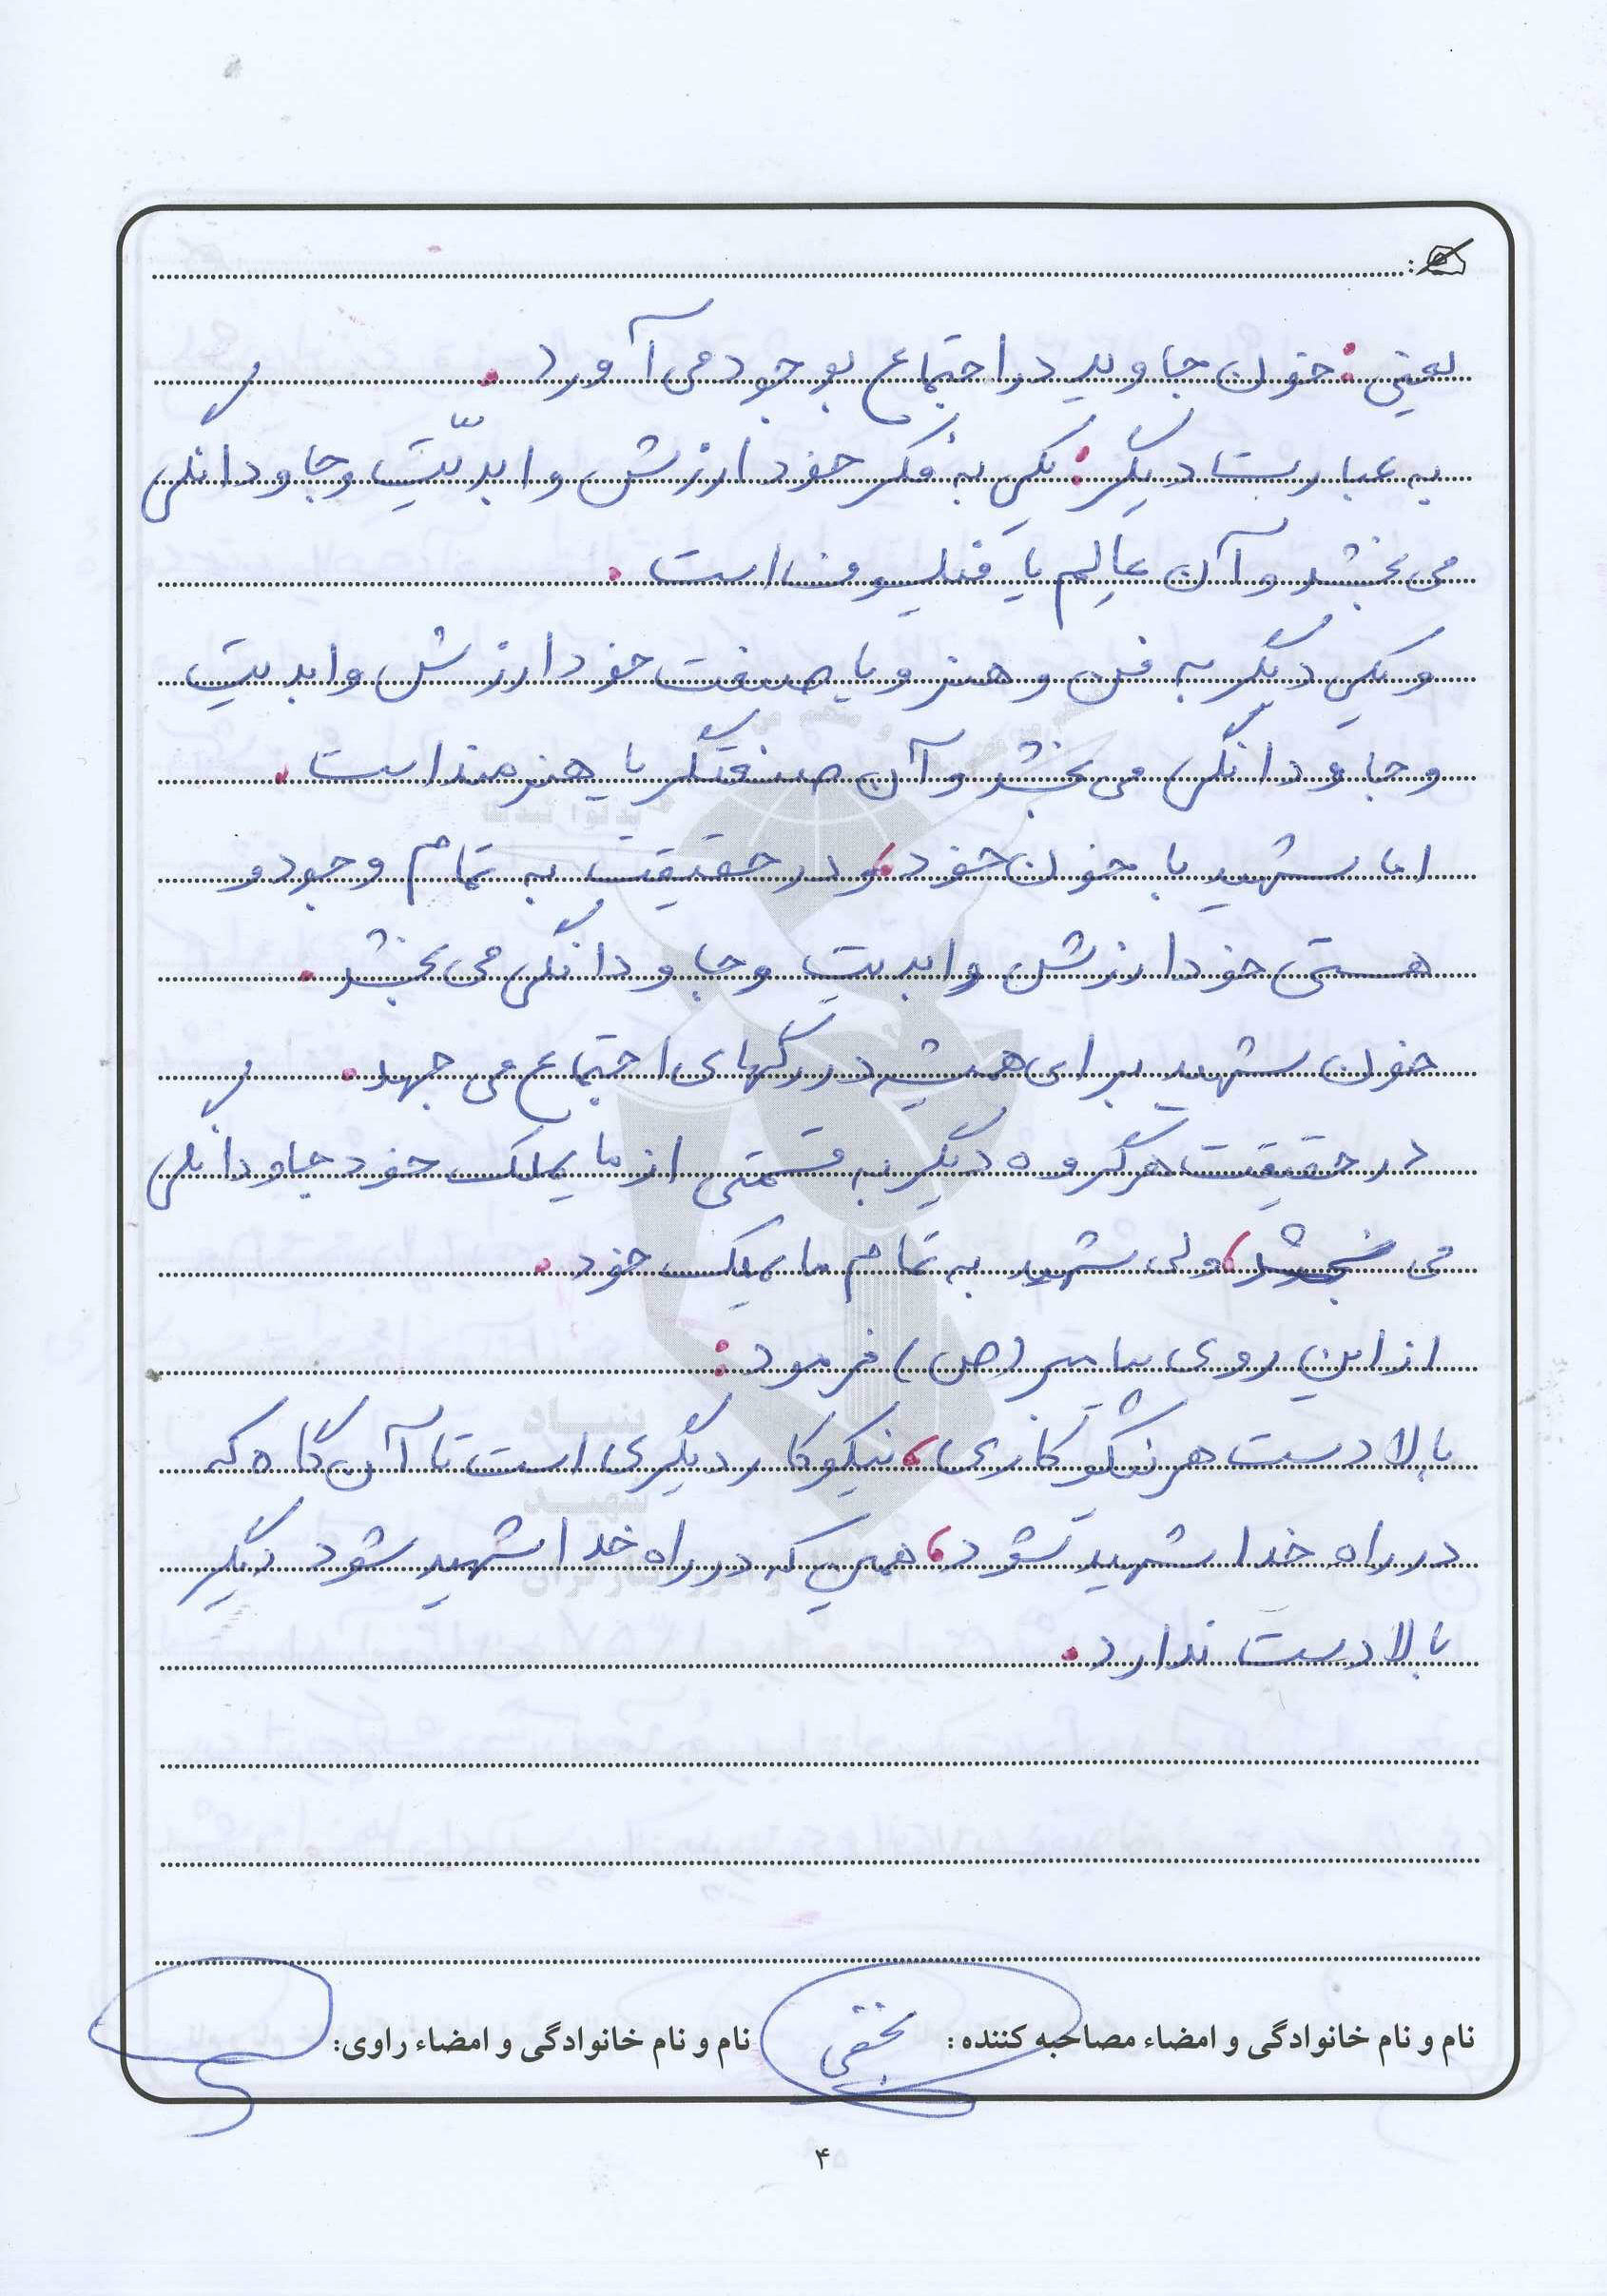 یعنی: خون جاوید در اجتماع بوجود می آورد.
به عبارت دیگر: یکی به فکر خود ارزش و ابدیّت و جاودانگی
می بخشد و آن عالِم یا فیلسوف است.
و یکی دیگر به فن و هنر و یا صنعت خود ارزش و ابدیت
و جاودانگی می بخشد و آن صنعتگر یا هنرمند است.
اما شهید با خون خود، و در حقیقت به تمام وجود و
هستی خود ارزش و ابدیت و جاودانگی می بخشد.
خون شهید برای همیشه در رگهای اجتماع می جهد.
در حقیقت هر گروه دیگر به قسمتی از مایملک خود جاودانگی
می بخشد، ولی شهید به تمام مایملک خود.
از این روی پیامبر (ص) فرمود:
بالا دست هر نیکوکاری، نیکوکار دیگری است تا آن گاه که
در راه خدا شهید شود، همین که در راه خدا شهید شود دیگر
بالا دست ندارد.
نام و نام خانوادگی و امضاء مصاحبه کننده:
نام و نام خانوادگی و امضاء راوی:
۴
بنیاد
شهید